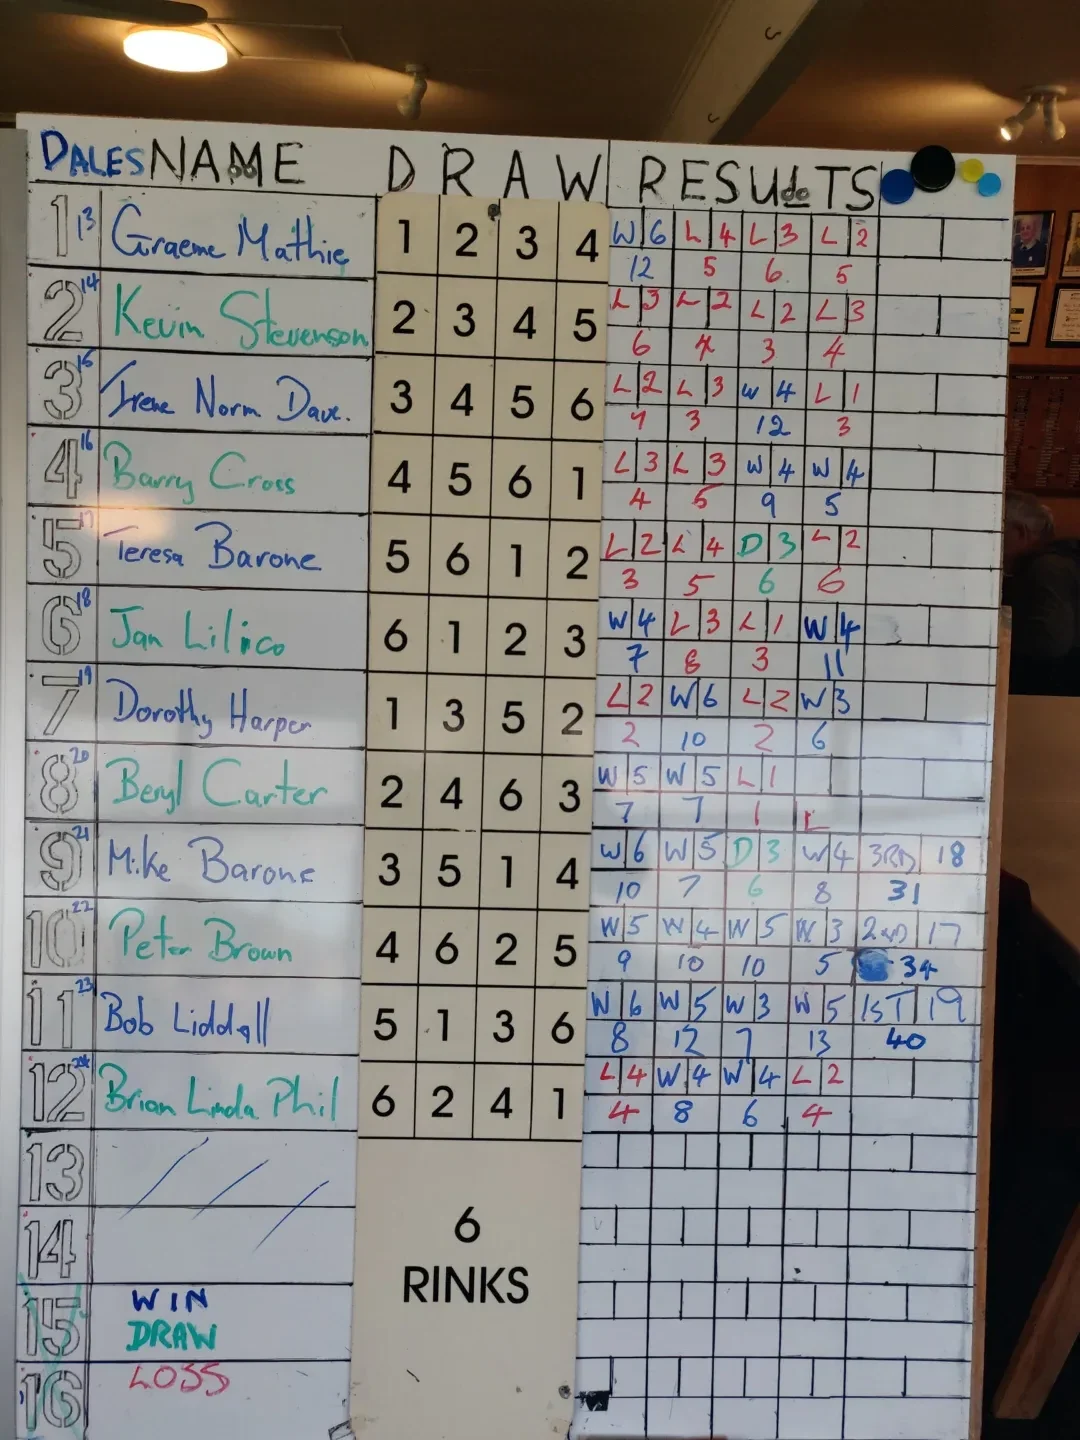 DALES NAME DRAW RESULTS
1 13 Graeme Mathie 1 2 3 4 W 6 L 4 L 3 L 2
12 5 6 5
2 14 Kevin Stevenson 2 3 4 5 L 3 L 2 L 2 L 3
6 4 3 4
3 15 Irene Norm Dave. 3 4 5 6 L 2 L 3 W 4 L 1
4 3 12 3
4 16 Barry Cross 4 5 6 1 L 3 L 3 W 4 W 4
4 5 9 5
5 17 Teresa Barone 5 6 1 2 L 2 L 4 D 3 L 2
3 5 6 6
6 18 Jan Lilico 6 1 2 3 W 4 L 3 L 1 W 4
7 8 3 11
7 19 Dorothy Harper 1 3 5 2 L 2 W 6 L 2 W 3
2 10 2 6
8 20 Beryl Carter 2 4 6 3 W 5 W 5 L 1
7 7 1 L
9 21 Mike Barone 3 5 1 4 W 6 W 5 D 3 W 4 3RD 18
10 7 6 8 31
10 22 Peter Brown 4 6 2 5 W 5 W 4 W 5 W 3 2ND 17
9 10 10 5 34
11 23 Bob Liddall 5 1 3 6 W 6 W 5 W 3 W 5 1ST 19
8 12 7 13 40
12 24 Brian Linda Phil 6 2 4 1 L 4 W 4 W 4 L 2
4 8 6 4
13
14
15 WIN
DRAW
16 LOSS
6
RINKS